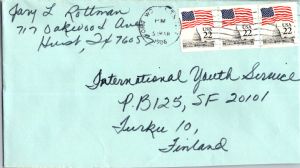 Gary L Rottman
717 Oakwood Ave
Hurst Tx 76053
PM
1986
USA 22
USA 22
USA 22
International Youth Service
P.B 125, SF 20101
Turku 10,
Finland